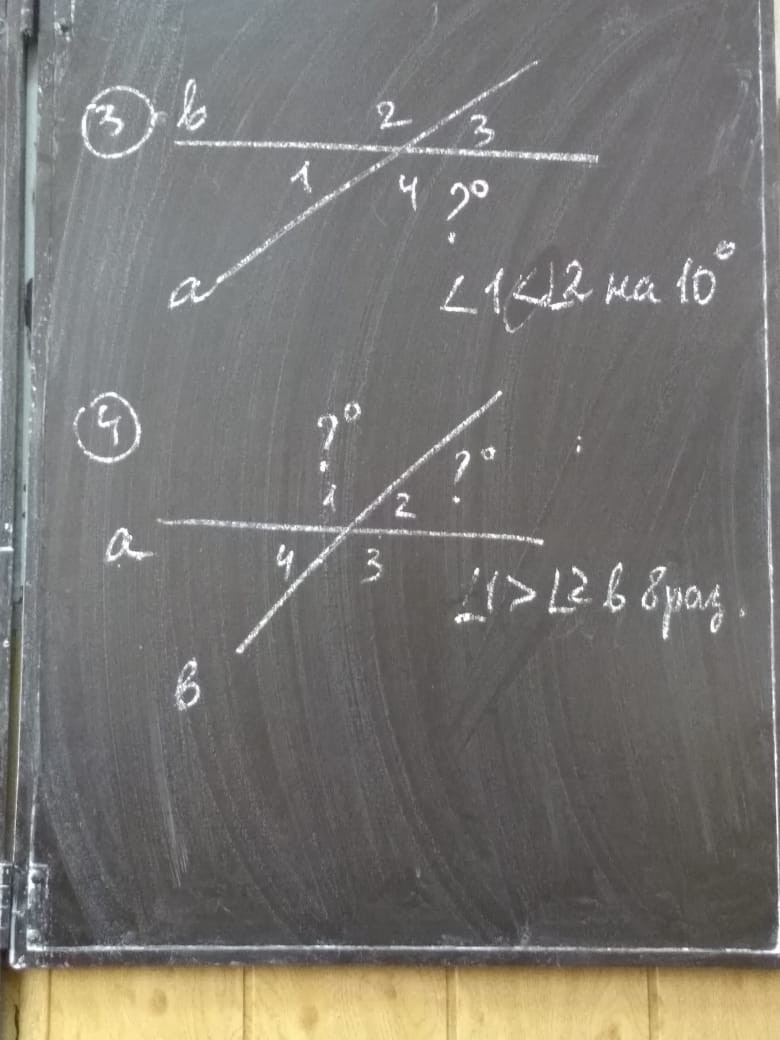 3 в 2 3
1 4 ?°
а ∠1<∠2 на 10°
4 ?°
1 2 ?°
а 4 3
∠1>∠2 в 8 раз.
в